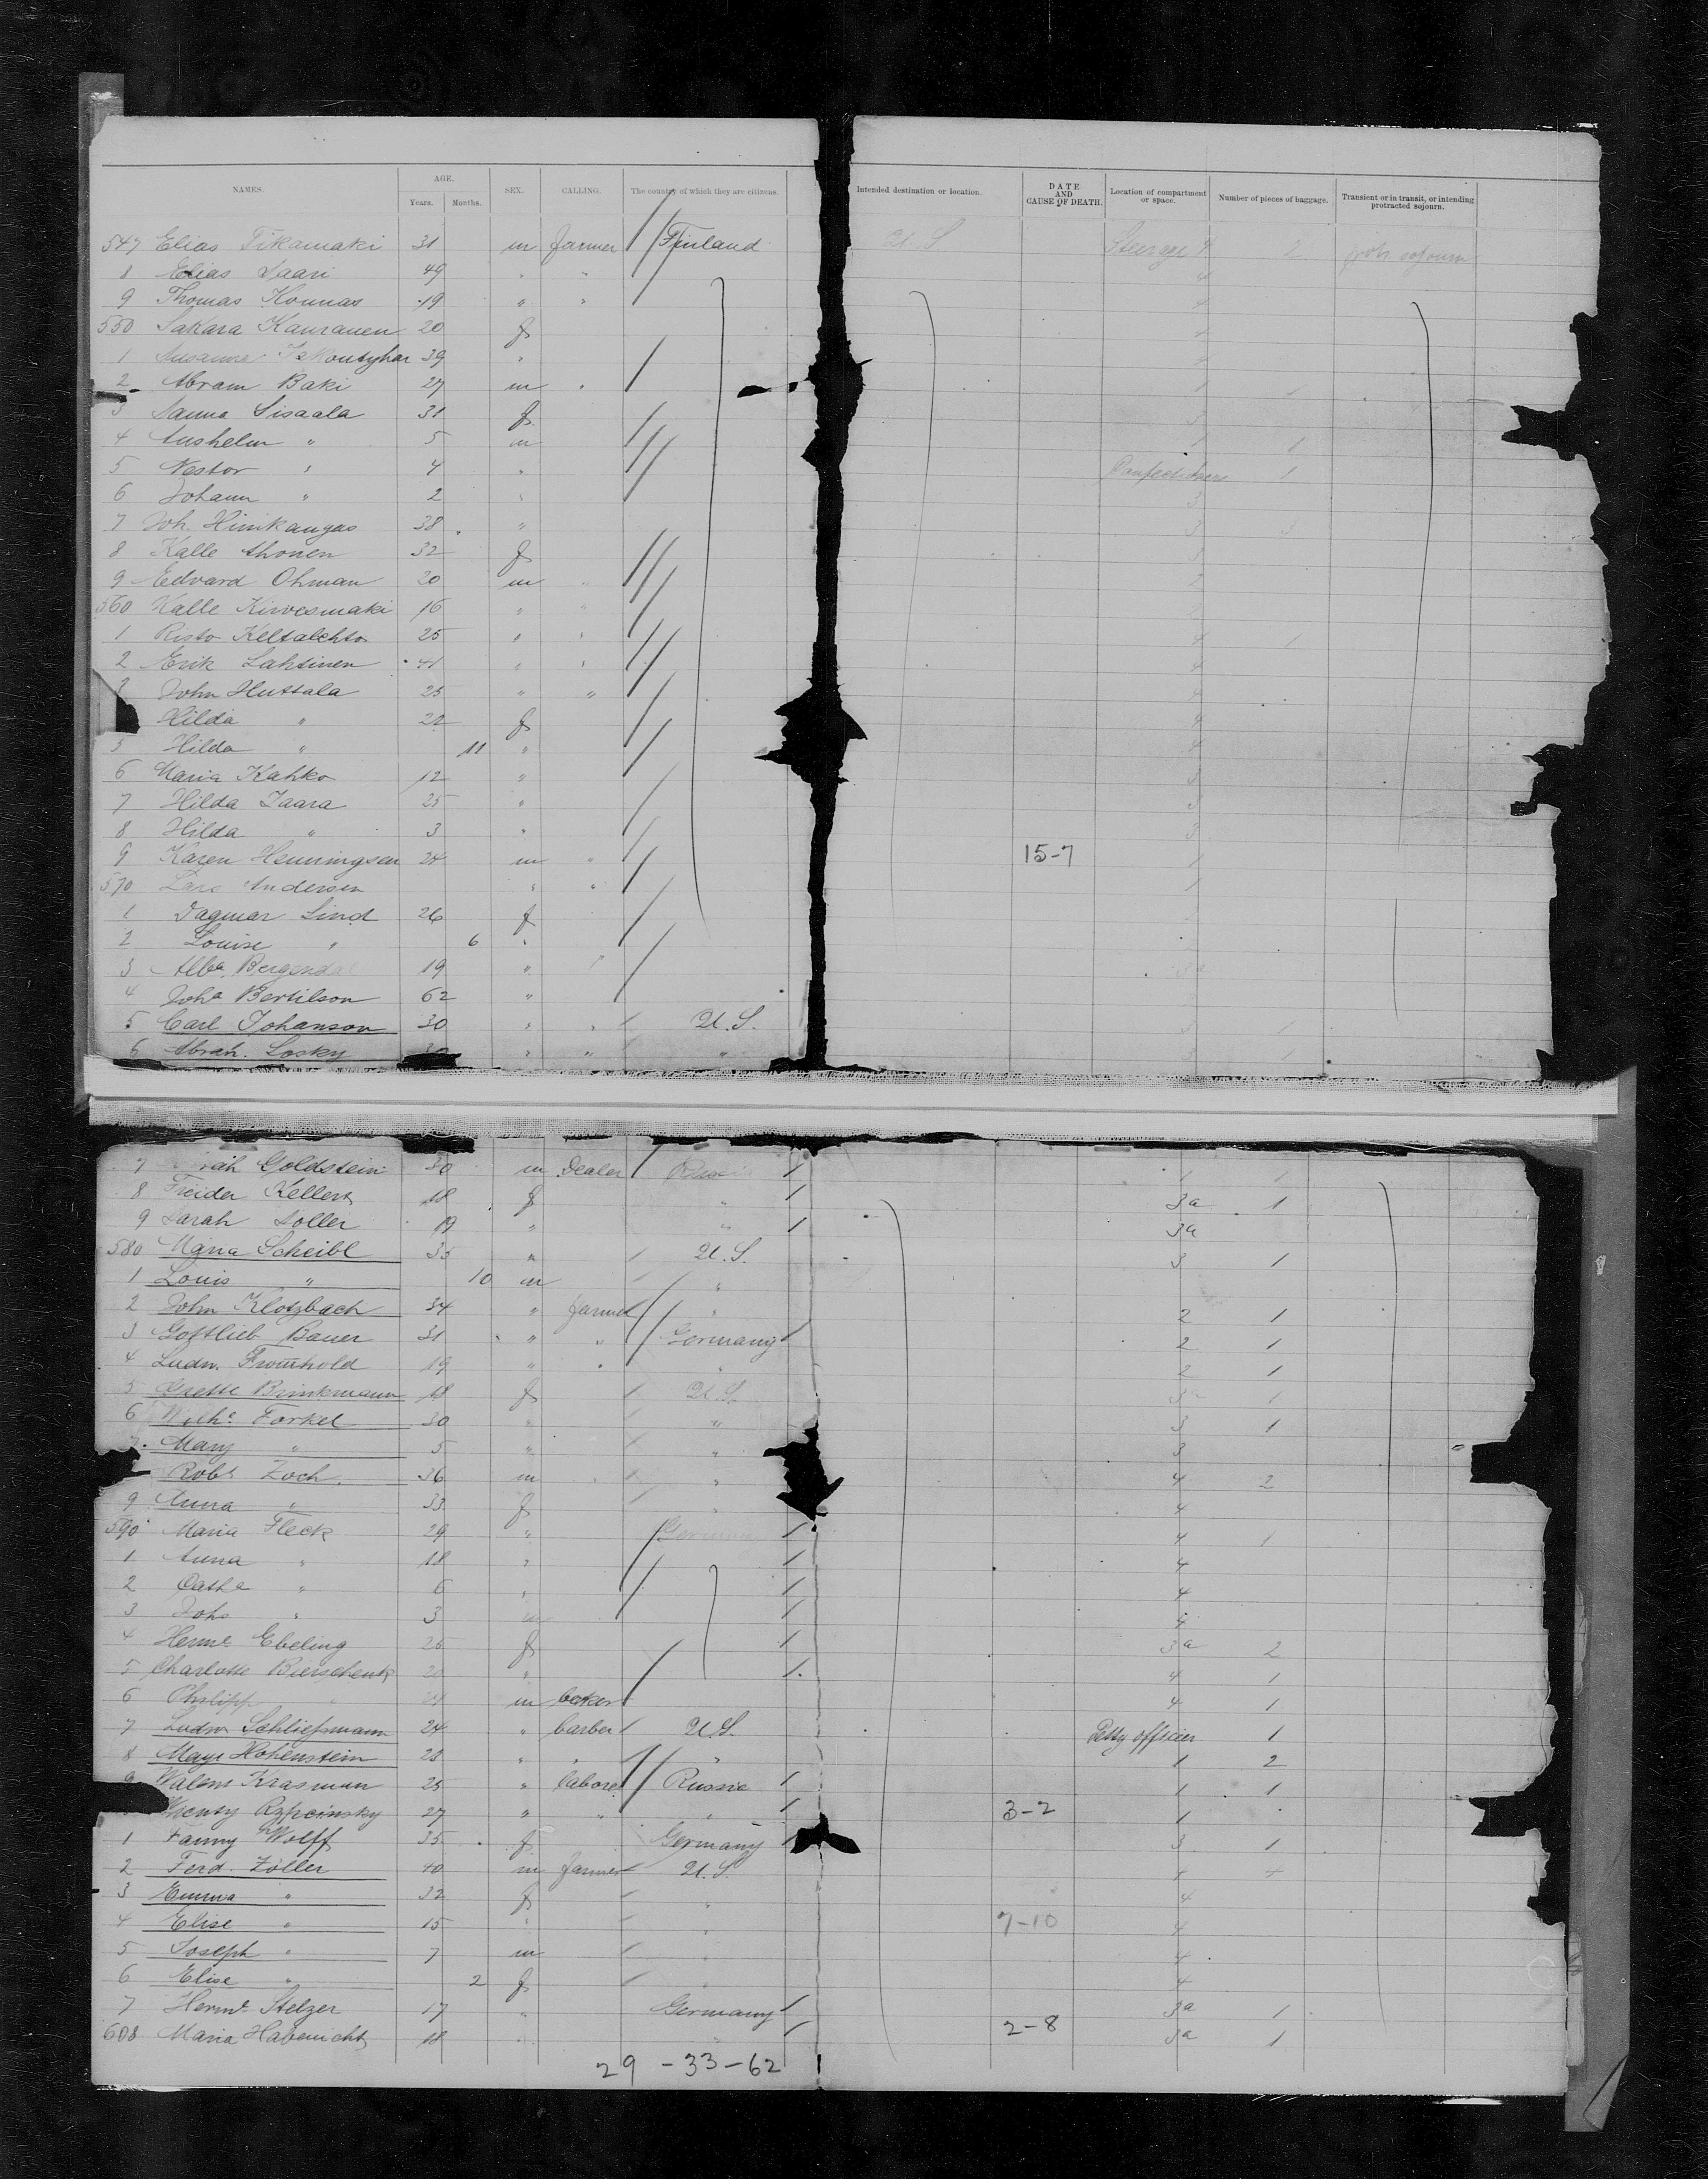 NAMES. AGE. Years. Months. SEX. CALLING. The country of which they are citizens. Intended destination or location. DATE AND CAUSE OF DEATH. Location of compartment or space. Number of pieces of baggage. Transient or in transit, or intending protracted sojourn.
547 Elias Tikamaki 31 m farmer Finland U.S. Steerage 4 2 sojourn
8 Elias Saari 49 " " 4
9 Thomas Kounas 19 " " 4
550 Sakara Kauranen 20 f 4
1 Susanna 39 " 4
2 Abram Baki 27 m " 1 1
3 Sanna Sisaala 31 f 3
4 Anshelm " 5 m 1 1
5 Nestor " 4 " 1
6 Johann " 2 " 3
7 Joh. Hinikangas 38 " 3 3
8 Kalle Ahonen 32 f 3
9 Edvard Ohman 20 m " 2
560 Kalle Kirvesmaki 16 " " 2
1 Risto Keltalehto 25 " " 4 1
2 Erik Lahtinen 41 " " 4
John Huttala 25 " " 4
Hilda " 22 f 4
5 Hilda " 11 " 4
6 Maria Kahko 12 " 3
7 Hilda Jaara 25 " 3
8 Hilda " 3 " 3
9 Karen Henningsen 24 m " 15-7 1
570 Lars Andersen " " 1
1 Dagmar Lind 26 f
2 Louise " 6 "
3 Alba Bergendal 19 " 3a
4 Joha Bertilson 62 "
5 Carl Johanson 30 " " U.S. 3 1
6 Abrah. Losky 30 " " " 3 1
7 Goldstein 30 m Dealer 1 1
8 Freider Kellert 18 f " 3a 1
9 Sarah Soller 19 " " 3a
580 Maria Scheibl 35 " U.S. 3 1
1 Louis " 10 m "
2 John Klotzbach 34 " farmer " 2 1
3 Gottlieb Bauer 31 " " Germany 2 1
4 Ludw. Fromhold 19 " " " 2 1
5 Grette Brinkmann 18 f U.S. 3a 1
6 Wilhe Forkel 30 " " 3 1
7 Mary " 5 " " 3
Robt Zoch 36 m " " 4 2
9 Anna " 33 f " 4
590 Maria Fleck 29 " Germany 4 1
1 Anna " 18 " 4
2 Cathe " 6 " 4
3 Johs " 3 m 4
4 Herme Ebeling 25 f 3a 2
5 Charlotte Bierschenk 20 " 4 1
6 Philipp " 24 m baker 4 1
7 Ludw. Schliessmann 24 " barber U.S. Petty officer 1
8 Hohenstein 28 " " " 1 2
9 Krasmun 25 " labore Russia 1 1
27 " " " 3-2 1
1 Fanny Wolff 35 f Germany 3 1
2 Ferd. Zöller 40 m farmer U.S. 4
3 Emma " 32 f " 4
4 Elise " 15 " " 7-10 4
5 Joseph " 7 m " 4
6 Elise " 2 f " 4
7 Herme Stelzer 17 " Germany 3a 1
608 Maria Habenicht 18 " " 2-8 3a 1
29-33-62